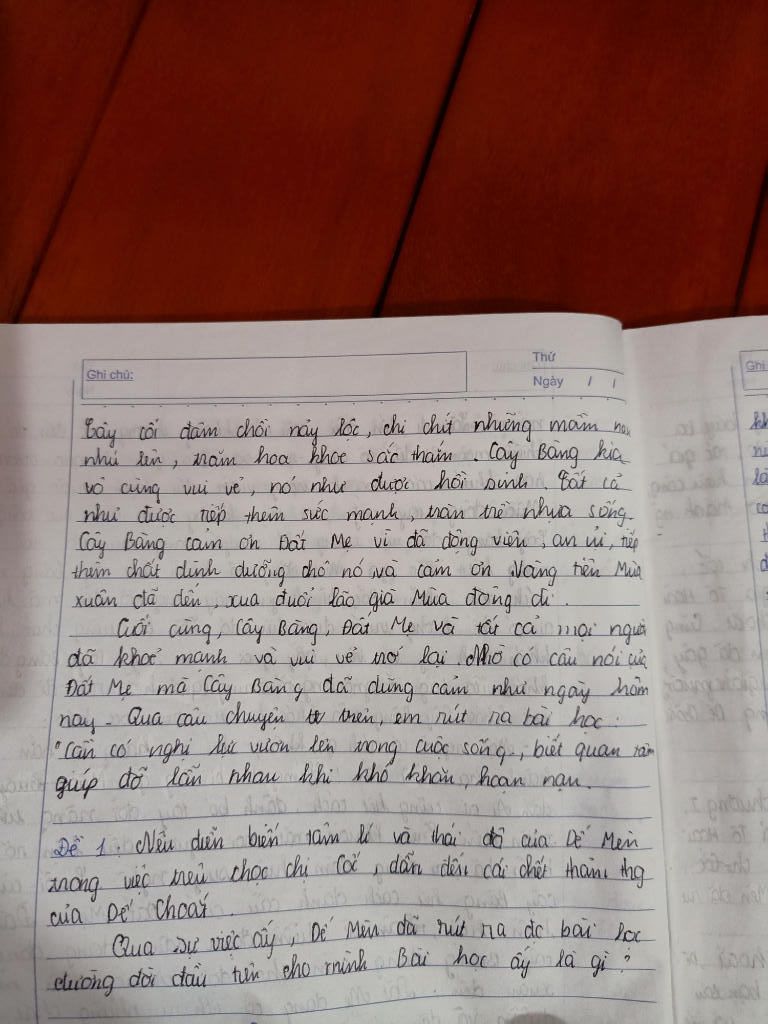 Ghi chú:
Thứ
Ngày / /
Cây cối đâm chồi nảy lộc, chi chút những mầm non
nhú lên, trăm hoa khoe sắc thắm Cây Bàng kia
vô cùng vui vẻ, nó như được hồi sinh. Tất cả
như được tiếp thêm sức mạnh, tràn trề nhựa sống.
Cây Bàng cảm ơn Đất Mẹ vì đã động viên, an ủi, tiếp
thêm chất dinh dưỡng chó nó và cảm ơn Nàng tiên Mùa
xuân đã đến, xua đuổi lão già Mùa đông đi.
Cuối cùng, Cây Bàng, Đất Mẹ và tất cả mọi người
đã khoẻ mạnh và vui vẻ trở lại. Nhờ có câu nói của
Đất Mẹ mà Cây Bàng đã dũng cảm như ngày hôm
nay. Qua câu chuyện trên, em rút ra bài học:
"Cần có nghị lực vươn lên trong cuộc sống, biết quan tâm
giúp đỡ lẫn nhau khi khó khăn, hoạn nạn.
Đề 1. Nêu diễn biến tâm lí và thái độ của Dế Mèn
trong việc trêu chọc chị Cốc, dẫn đến cái chết thảm thg
của Dế Choắt.
Qua sự việc ấy, Dế Mèn đã rút ra đc bài học
đường đời đầu tiên cho mình Bài học ấy là gì?
Ghi